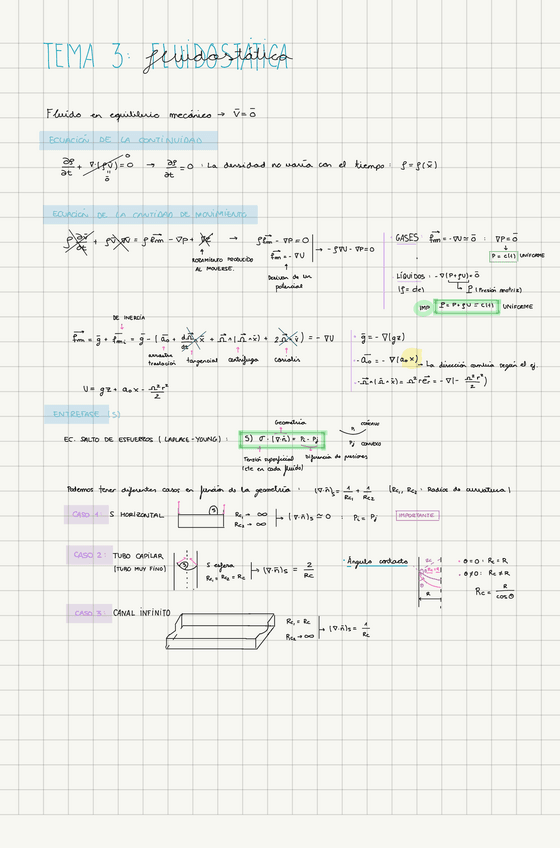 TEMA 3: FLUIDOSTÁTICA
fluidostática
Fluido en equilibrio mecánico → v̄ = 0̄
ECUACIÓN DE LA CONTINUIDAD
∂ρ/∂t + ∇·(ρv̄) = 0 → ∂ρ/∂t = 0 : La densidad no varía con el tiempo : ρ = ρ(x̄)
ECUACIÓN DE LA CANTIDAD DE MOVIMIENTO
ρ ∂v̄/∂t + ρv̄·∇v̄ = ρf̄m - ∇P + ∇τ̄ → ρf̄m - ∇P = 0
f̄m = -∇U
→ -ρ∇U - ∇P = 0
ROZAMIENTO PRODUCIDO AL MOVERSE.
Derivan de un potencial
GASES f̄m = -∇U ≃ 0̄ : ∇P = 0
P = C(t) UNIFORME
LÍQUIDOS : -∇(P+ρU) = 0̄
(ρ = cte) P (Presión motriz)
IMP P = P + ρU = C(t) UNIFORME
DE INERCIA
f̄m = ḡ + f̄mi = ḡ - (ā₀ + dΩ̄/dt ∧ x̄ + Ω̄ ∧ (Ω̄ ∧ x̄) + 2Ω̄ ∧ v̄) = -∇U
arrastre traslación tangencial centrífuga coriolis
· ḡ = -∇(gz)
· -ā₀ = -∇(a₀x) → La dirección cambia según el ej.
· -Ω̄ ∧ (Ω̄ ∧ x̄) = Ω²r ēr = -∇(-Ω²r²/2)
U = gz + a₀x - Ω²r²/2
ENTREFASE (S)
EC. SALTO DE ESFUERZOS (LAPLACE-YOUNG) : S) σ·(∇·n̄) = Pi - Pj
Geometría
Tensión superficial (cte en cada fluido)
Diferencia de presiones
Pi CÓNCAVO
Pj CONVEXO
Podemos tener diferentes casos en función de la geometría : (∇·n̄)s = 1/Rc₁ + 1/Rc₂ (Rc₁, Rc₂ : Radios de curvatura)
CASO 1: S HORIZONTAL (S) Rc₁ → ∞
Rc₂ → ∞
→ (∇·n̄)s ≃ 0 : Pi = Pj IMPORTANTE
CASO 2: TUBO CAPILAR
(TUBO MUY FINO)
(S)
S esfera
Rc₁ = Rc₂ = Rc
→ (∇·n̄)s = 2/Rc
· Ángulo contacto
R
· θ = 0 : Rc = R
· θ ≠ 0 : Rc ≠ R
Rc = R/cosθ
CASO 3: CANAL INFINITO
Rc₁ = Rc
Rc₂ → ∞
→ (∇·n̄)s = 1/Rc